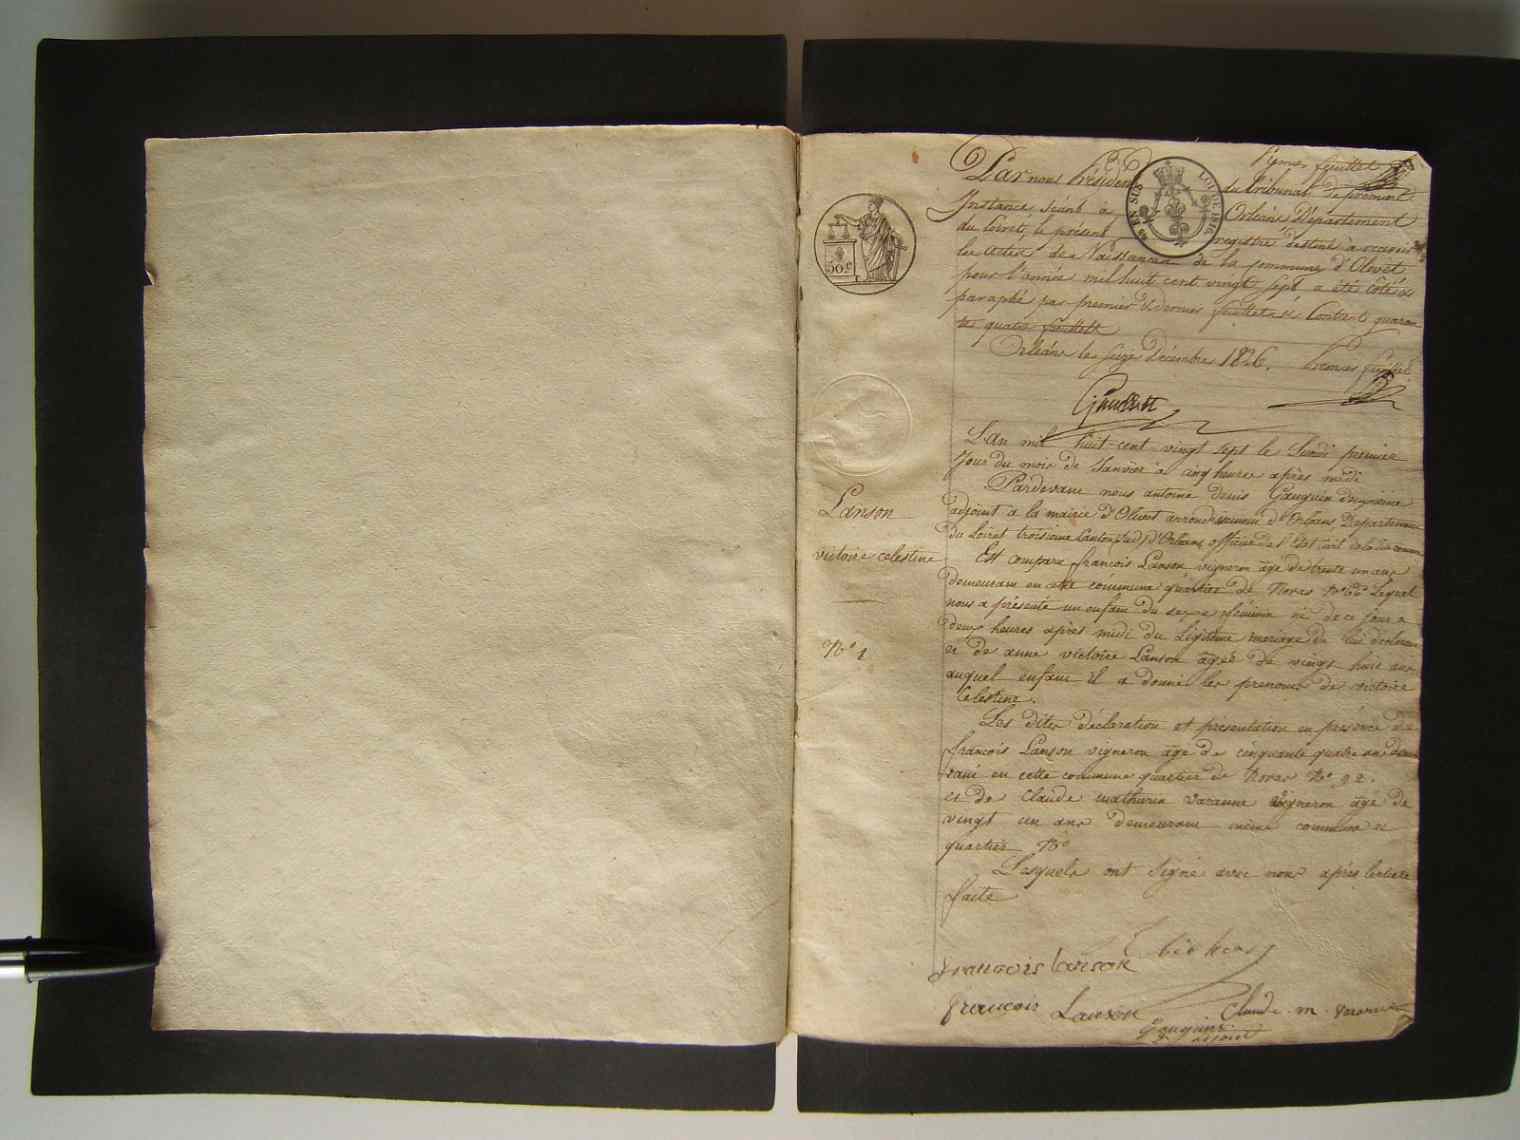 premier feuillet
Par nous Président du tribunal de première
Instance séant à Orléans Département
du Loiret, le présent registre destiné à recevoir
les Actes de Naissances de la commune d'Olivet
pour l'année mil huit cent vingt sept a été côté et
paraphé par premier et dernier feuillets et contient quaran
te quatre feuillets
Orléans le seize Décembre 1826. Premier feuillet
50c
EN SUS
LOI DE 1816
L'an mil huit cent vingt sept le Lundi premier
Jour du mois de Janvier à cinq heures après midi
Pardevant nous antoine denis Gauguin deuxième
adjoint a la mairie d'Olivet arrondissement d'Orléans, Departement
du Loiret troisieme Canton (sud) d'Orléans officier de l'Etat Civil
Lanson
victoire celestine
Nº 1
Est comparu françois Lanson vigneron âgé de trente un ans
demeurant en commune quartier de Noras Nº Lequel
nous a présenté un enfant du sexe féminin né de ce jour a
deux heures après midi du Légitime mariage de lui declarant
et de anne victoire Lanson âgée de vingt huit ans
auquel enfant il a donné les prenoms de victoire
Celestine.
Les dites déclaration et présentation en présence de
françois Lanson vigneron âgé de cinquante quatre ans demeu
rant en cette commune quartier de Noras Nº 92.
et de Claude mathurin varanne vigneron âgé de
vingt un ans demeurant même commune et
quartier Nº
Lesquels ont signé avec nous après lecture
faite
francois Lanson
francois Lanson Claude . m . varanne
Gauguin
adjoint